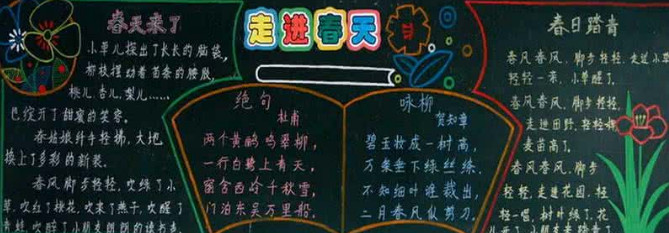 春天来了
小草儿探出了长长的脑袋，
柳枝摆动着苗条的腰肢，
桃儿、杏儿、梨儿……
也绽开了甜蜜的笑容。
春姑娘纤手轻拂，大地
换上了多彩的新装。
春风脚步轻轻，吹绿了小
草，吹红了桃花，吹来了燕子，吹醒了
走进春天
绝句
杜甫
两个黄鹂鸣翠柳，
一行白鹭上青天，
窗含西岭千秋雪，
门泊东吴万里船。
咏柳
贺知章
碧玉妆成一树高，
万条垂下绿丝绦，
不知细叶谁裁出，
二月春风似剪刀。
春日踏青
春风春风，脚步轻轻，走过小草
轻轻一亲，小草醒了。
春风春风，脚步轻轻，
走进田野，轻轻
麦苗高了。
春风春风，脚步
轻轻，走进花园，轻
轻一唱，树叶绿了，花